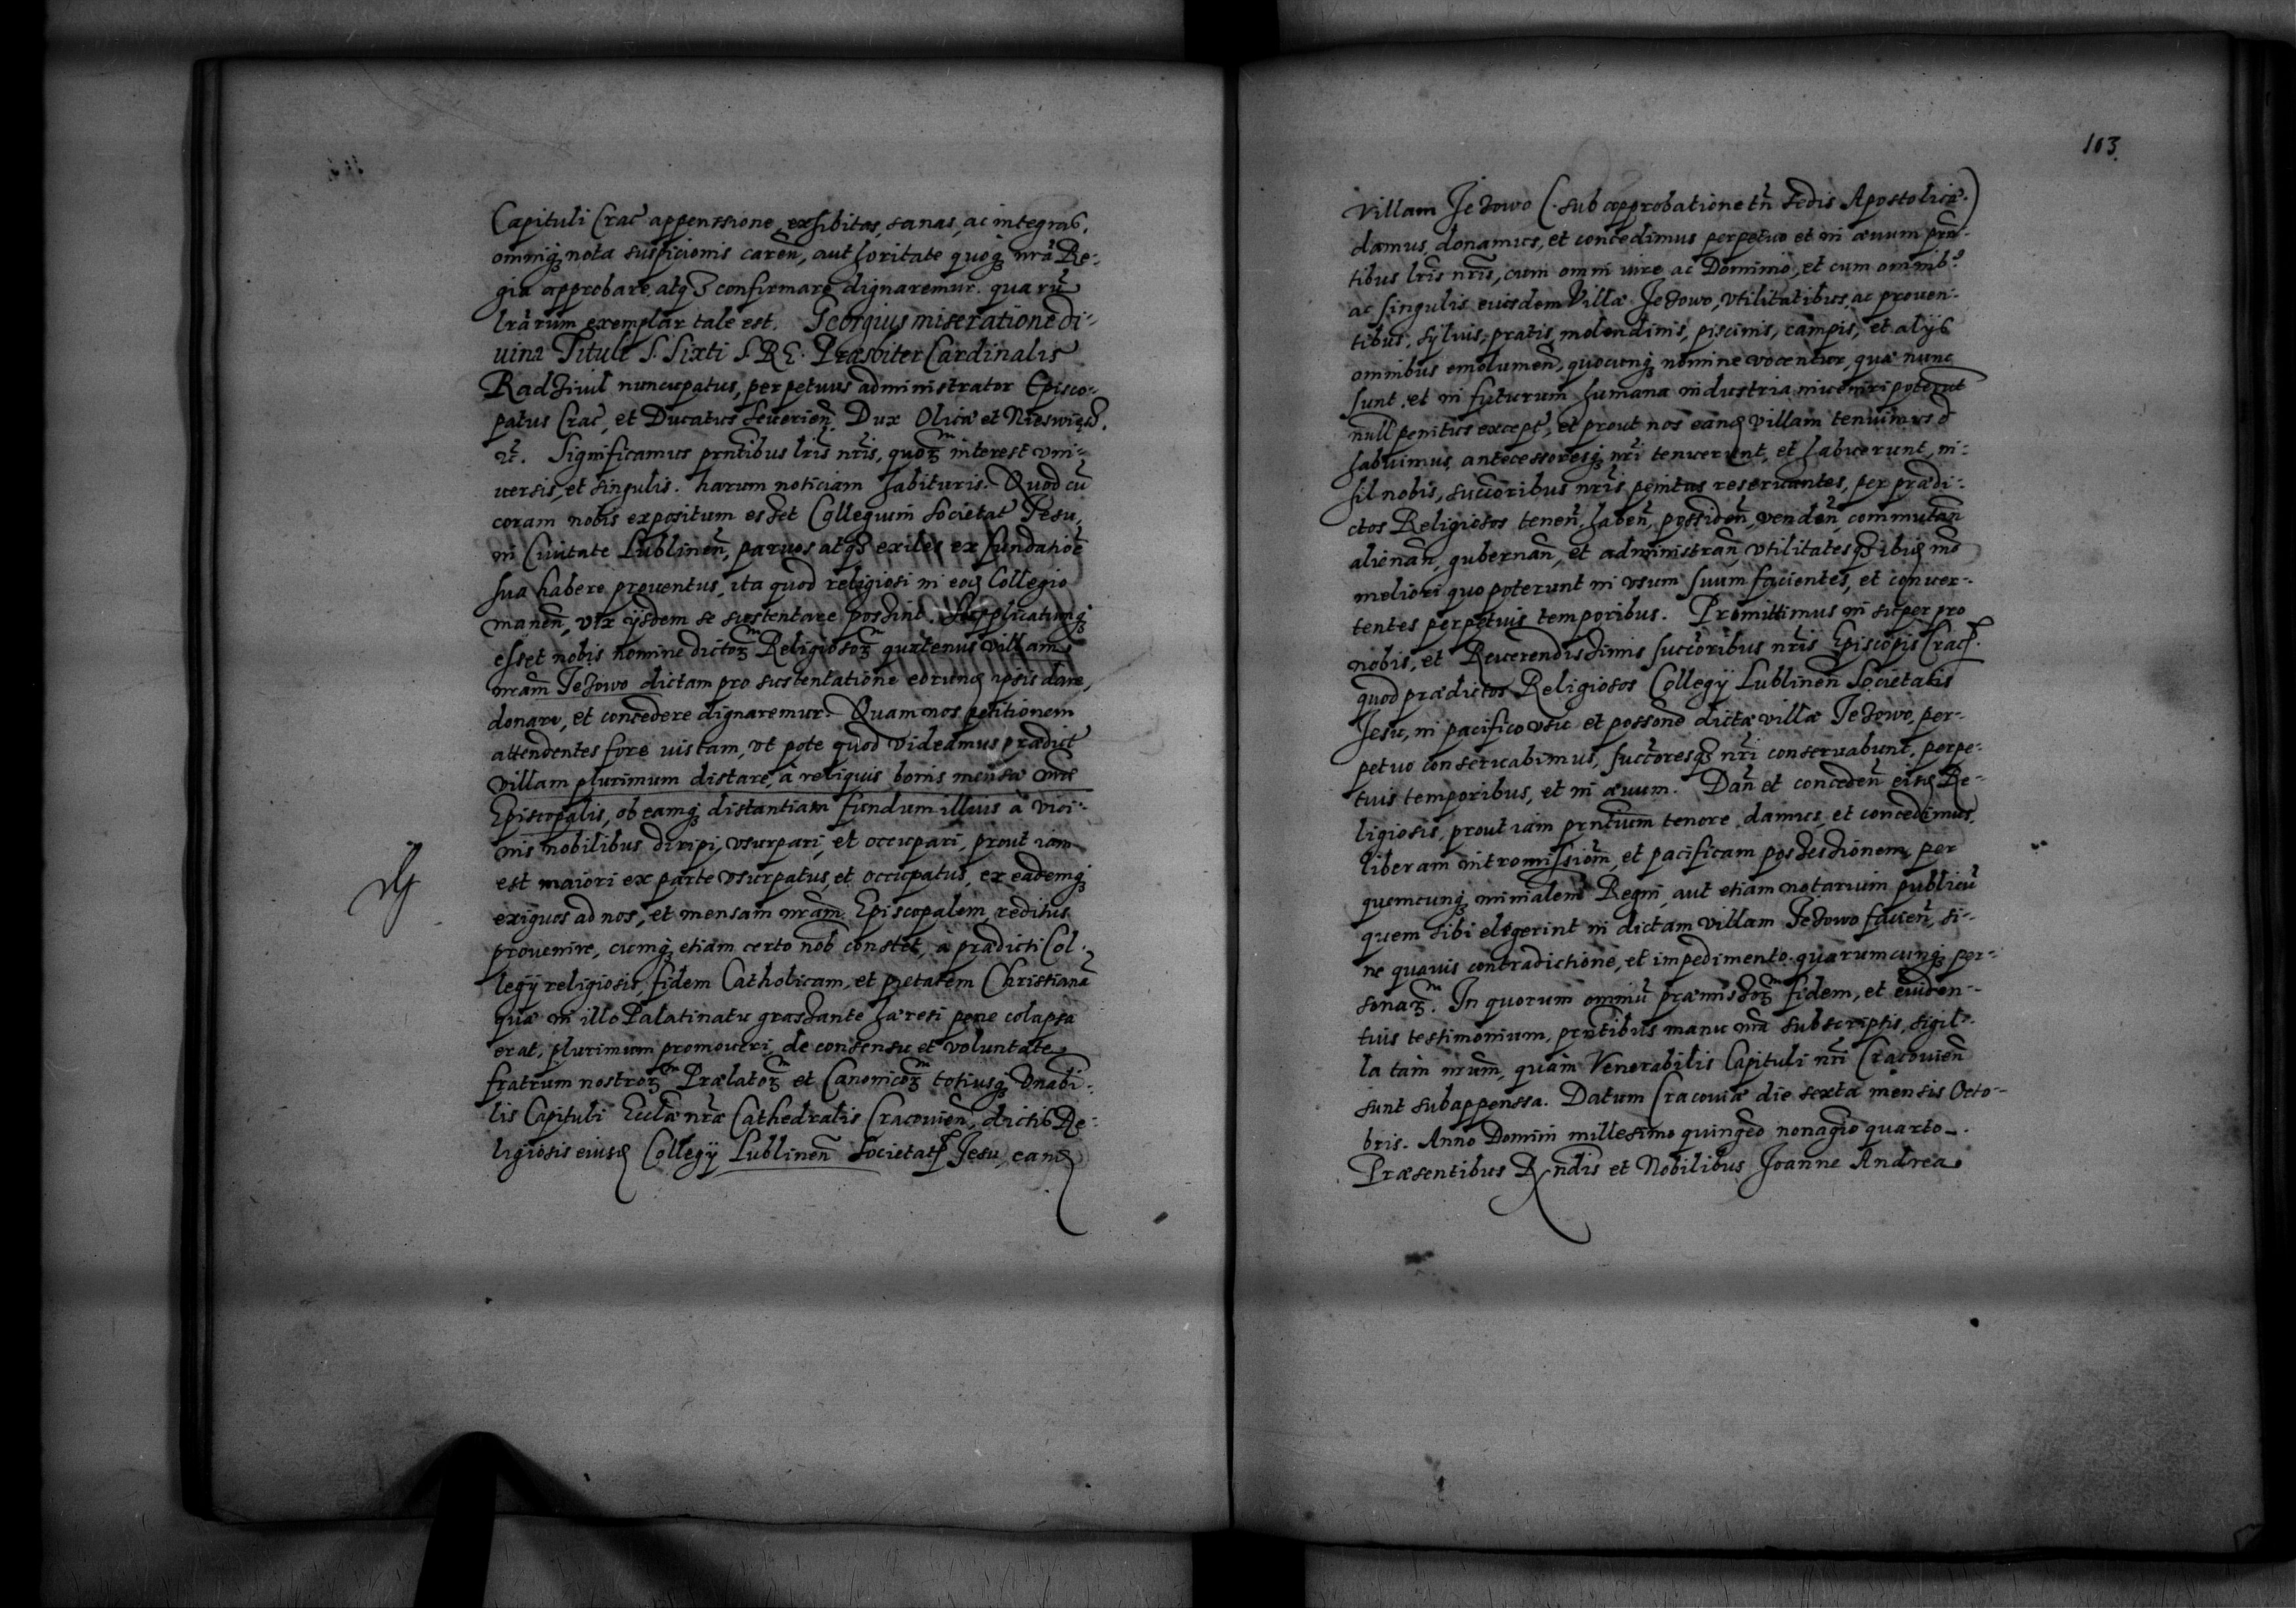 Capituli Crac̄ appenssione, exhibitas, sanas, ac integras,
omniq̨ nota suspicionis carēn, authoritate quoq̨ nr̄a Re-
gia approbare, atq̨ confirmare dignaremur. quarū
lr̄arum exemplar tale est. Georgius miseratione di-
uina Tituli S. Sixti S. R. E. Præsbiter Cardinalis
Radziuil nuncupatus, perpetuus administrator Episco-
patus Crac̄, et Ducatus Seuerien̄. Dux Olicæ et Nieswież.
ꝛc̄. Significamus prn̄tibus lr̄is nr̄is, quoꝝ interest vni-
uersis, et singulis. harum noticiam habituris. Quod cū
coram nobis expositum esset Collegium Societat̄ Jesu,
in Ciuitate Lublinen̄, paruos atq̨ exiles ex fundatiōe
sua habere prouentus, ita quod religiosi in eod̨ Collegio
manen̄, vix ijsdem se sustentare possint. Supplicatumq̨
esset nobis nomine dictoꝝ Religiosoꝝ quatenus Villam
nr̄am Jezowo dictam pro sustentatione eorund̨ ipsis dare,
donare, et concedere dignaremur. Quam nos petitionem
attendentes fore iustam, vt pote quod videamus prædict̄
villam plurimum distare, à reliquis bonis mensæ nr̄æ
Episcopalis, ob eamq̨ distantiam fundum illius à vici-
nis nobilibus diripi, vsurpari, et occupari, prout iam
est maiori ex parte vsurpatus, et occupatus, ex eademq̨
exiguos ad nos, et mensam nr̄am Episcopalem, reditus
prouenire, cumq̨ etiam certo nob̄ constet, à prædicti Col-
legij religiosis, fidem Catholicam, et pietatem Christianā
quæ in illo Palatinatu grassante hæresi pene colapsa
erat, plurimum promoueri, de consensu et voluntate
fratrum nostroꝝ Prælatoꝝ et Canonicoꝝ totiusq̨ Vnābi-
lis Capituli Eccl̄æ nr̄æ Cathedralis Cracouien̄, dictis Re-
ligiosis eiusd̨ Collegij Lublinen̄ Societatꝭ Jesu, eand̨
103.
villam Jezowo (sub approbatione tn̄ Sedis Apostolicæ.)
damus, donamus, et concedimus perpetuo et in æuum prn̄-
tibus lr̄is nr̄is, cum omni iure ac Dominio, et cum omnib⁹
ac singulis eiusdem Villæ Jezowo, vtilitatibus, ac prouen-
tibus, syluis, pratis, molendinis, piscinis, campis, et alijs
omnibus emolumen̄, quocunq̨ nomine vocentur, quæ nunc
sunt, et in futurum humana industria inueniri poterūt
null̄ penitus except̄, et prout nos eand̨ villam tenuimus &
habuimus, antecessoresq̨ nr̄i tenuerunt, et habuerunt, ni-
hil nobis, succōribus nr̄is penitus reseruantes, per prædi-
ctos Religiosos tenen̄, haben̄, possiden̄, venden̄, commutan̄
alienan̄, gubernan̄, et administran̄, vtilitatesq̨ ibid̨ mō
meliori quo poterunt in vsum suum facientes, et conuer-
tentes perpetuis temporibus. Promittimus in super pro
nobis, et Reuerendissimis succōribus nr̄is Episcopis Cracꝭ.
quod prædictos Religiosos Collegij Lublinen̄ Societatis
Jesu, in pacifico vsu et possōne dictæ villæ Jezowo, per-
petuo conseruabimus, succ̄oresq̨ nr̄i conseruabunt, perpe-
tuis temporibus, et in æuum. Dan̄ et conceden̄ eisd̨ Re-
ligiosis, prout iam prn̄tium tenore damus, et concedimus,
liberam intromissiōm, et pacificam possessionem, per
quemcunq̨ minialem̄ Regni, aut etiam notarium publicū
quem sibi elegerint in dictam villam Jezowo facien̄, si-
ne quauis contradictione, et impedimento quarumcunq̨ per-
sonaꝝ. In quorum omniū præmissoꝝ fidem, et euiden-
tius testimonium, prn̄tibus manu nr̄a subscriptis, sigil-
la tam nr̄um, quam Venerabilis Capituli nr̄i Cracouien̄
sunt subappenssa. Datum Cracouiæ die sexta mensis Octo-
bris. Anno Domini millesimo quingēo nonagīo quarto.
Præsentibus Rn̄dis et Nobilibus Joanne Andrea